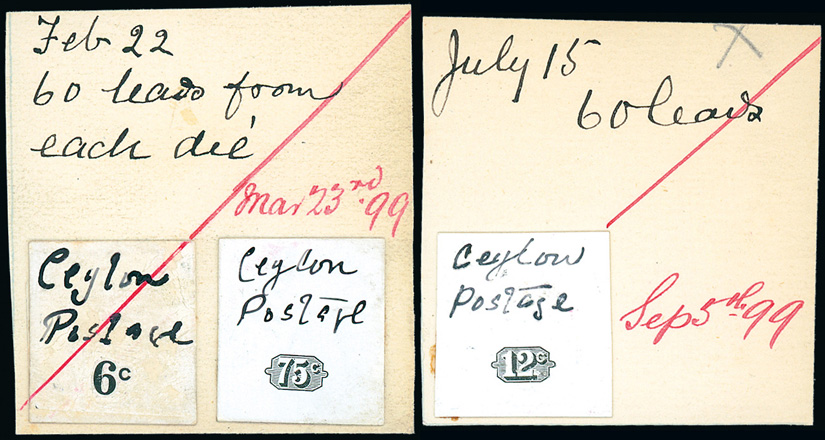 Feb 22
60 leads from
each die
Mar 23rd 99
Ceylon
Postage
6c
Ceylon
Postage
75c
July 15
60 leads
Ceylon
Postage
12c
Sep 5th 99